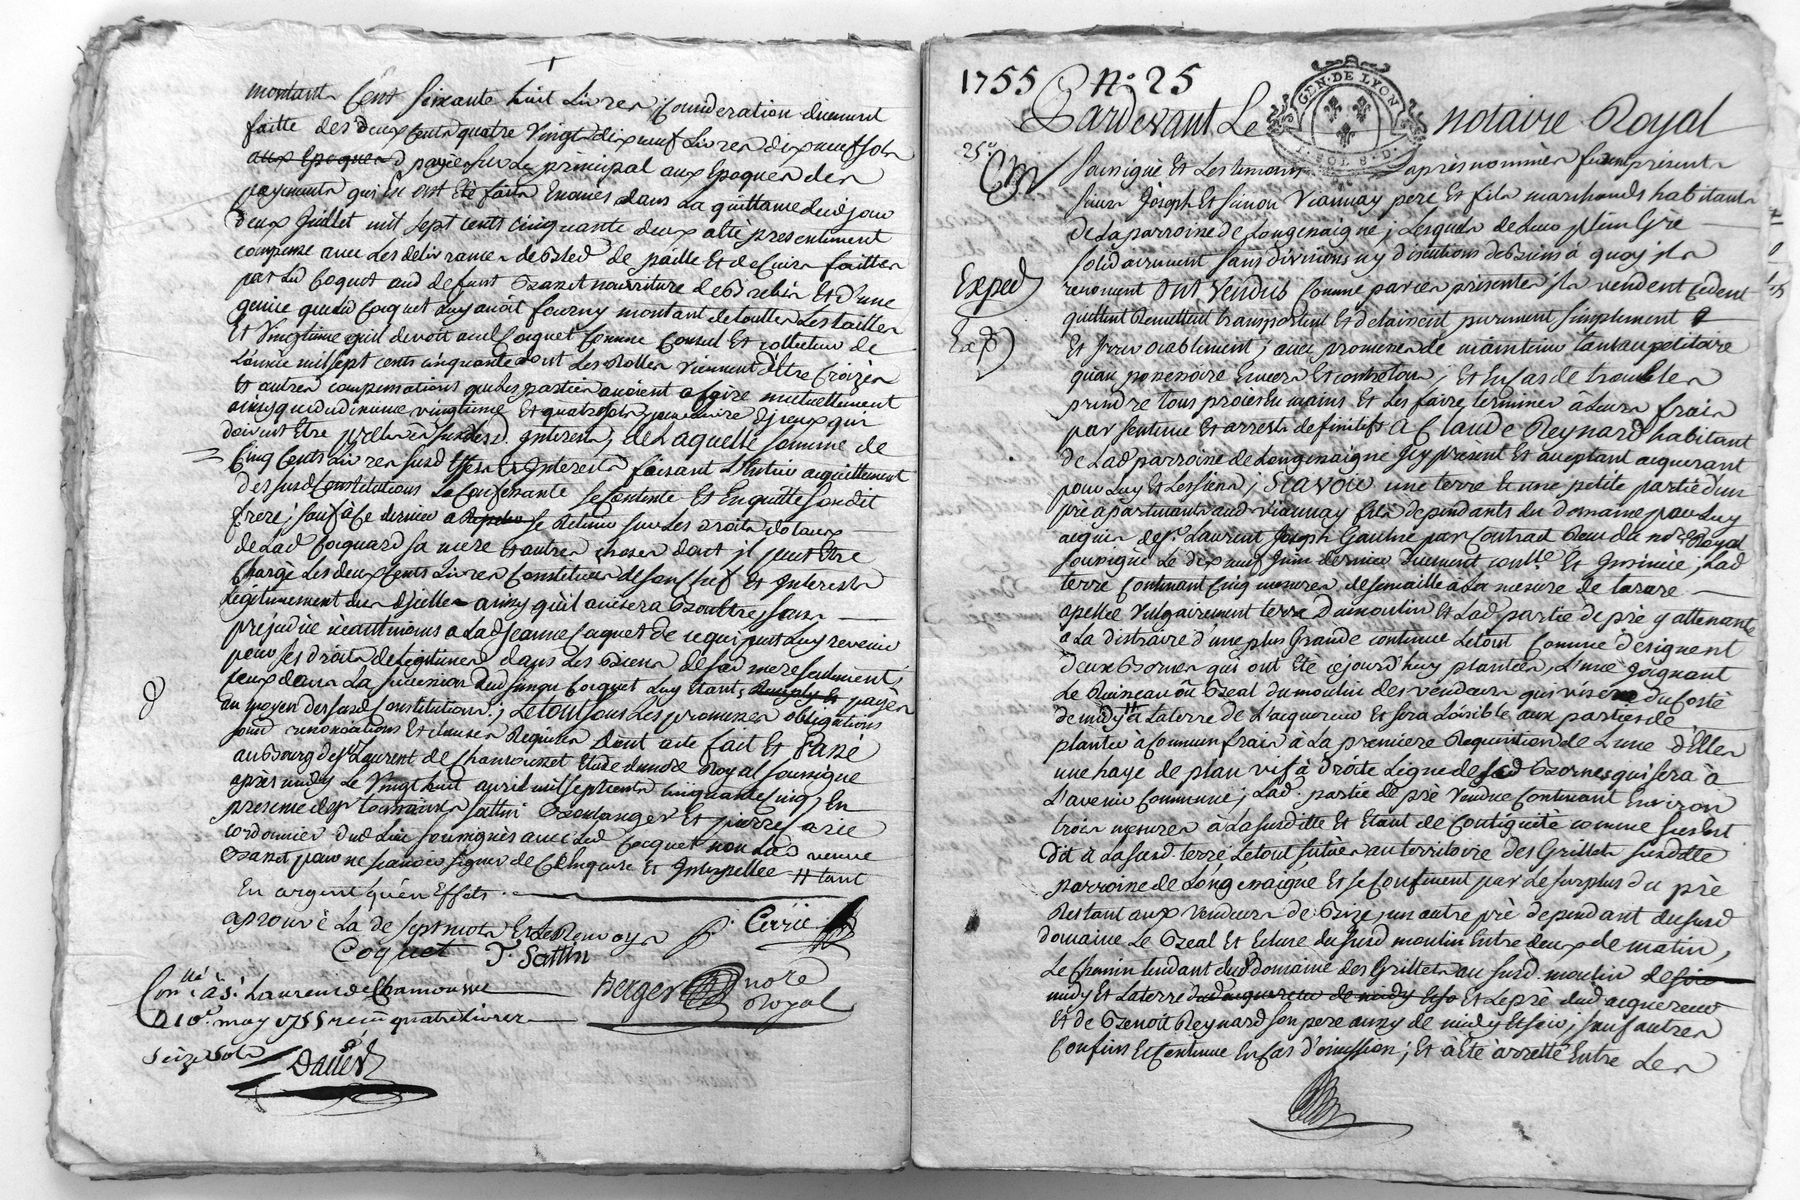 montant Cent soixante huit Livres Consideration duement
faitte des deux Cents quatre Vingt dix neuf Livres dix neuf sols
aux Epoques d payés sur Le principal aux Epoques des
payements qui En ont Eté faits Enoncés dans La quittance dud jour
deux Juillet mil sept cents cinquante deux a été presentement
compensé avec Les délivrances de Bled de paille Et de Cuirs faittes
par Led Coquet aud defunt Bzanet nourriture de Brebis Et d'une
genice que led Coquet Luy avoit fourny montant de touttes Les tailles
Et Vingtieme qu'il devoit aud Coquet Comme Consul Et collecteur de
L'année mil sept cents cinquante dont Les Rolles Viennent d'être Croizés
Et autres compensations que Les parties avoient a faire mutuellement
ainsy que du dixieme vingtieme Et quatre sols pour Livre d'jceux qui
doivent Etre prelevés sur lesd. Interests, de Laquelle somme de
Cinq Cents Livres susd Effets Et Interests faisant L'Entier acquittement
des susd Constitutions La Confessante se Contente Et En quitte sondit
frere; sauf à Ce dernier a se Retenir sur Les droits dotaux
de Lad Coquard sa mere Et autres choses dont jl peut Etre
Chargé Les deux Cents Livres Constituées de son Chef Et Interests
Legitimement dus d'jcelles ainsy qu'il avisera Bzoultre, sans
prejudice néantmoins a Lad Jeanne Coquet de ce qui peut Luy revenir
pour ses droits de Legitimes dans Les Biens de sad mere seulement;
ceux dans La succession dud Coquet Luy Etants payés
au moyen des susd Constitutions; Le tout sous Les promesses obligations
soumd renonciations Et clauses Requises Dont acte fait Et Passé
au Bourg de St Laurent de Chamousset Etude du nore Royal soussigné
après midy Le Vingt huit avril mil sept cents cinquante cinq, En
presence de sr toussaints sattin Boulanger Et pierre
cordonnier dud Lieu soussignés avec Led Coquet non Lad veuve
Bzanet pour ne sçavoir signer de Ce Enquise Et Interpellée # tant
En argent qu'en Effets
aprouvé La de sept mots Et Le Renvoy
Coquet T. Sattin
Berger nore
Royal
Conllé à St Laurent de Chamousset
Le 10e may 1755 recu quatre livres
seize sols
1755 N° 25
GEN. DE LYON
Pardevant Le notaire Royal
25e
soussigné Et Les temoins apres nommés furent présents
sieurs Joseph Et simon Viannay pere Et fils marchands habitants
de La parroisse de Longessaigne; Lesquels de Leur plein Gré
solidairement sans divisions ny discutions de Biens à quoy jls
Exped
renoncent Ont Vendus Comme par ces présentes jls vendent Cedent
quittent Remettent transportent Et delaissent purement simplement
Et Irrevocablement; avec promesses de maintenir tant au petitoire
qu'au possessoire Envers Et contre tous; Et En cas de troubles
prendre tous procès En mains Et Les faire terminer à Leurs frais
par sentence Et arrests definitifs à Claude Reynard habitant
de Lad parroisse de Longessaigne Jcy présent Et acceptant acquerant
pour Luy Et Les siens, Scavoir une terre Et une petite partie d'un
pré apartenants aud Viannay fils dependants du domaine par Luy
acquis de sr Laurent Joseph Gaultié par Contrat Reçu du nore Royal
soussigné Le dix neuf Juin dernier duement contllé Et Insinué; Lad
terre Contenant Cinq mesures de semaille à La mesure de tarare
apellée Vulgairement terre du moulin Et Lad partie de pré y attenante
à La distraire d'une plus Grande contenue Le tout Comme désignent
deux Bornes qui ont Eté cejourd'huy plantées, L'une Joignant
Le Ruisseau ou Bzeal du moulin des vendeurs qui vise du Costé
de midy # à La terre de L'acquereur Et sera Loisible aux parties de
planter à Commun frais à La premiere Requisition de L'une d'Elles
une haye de plan vif à droite Ligne desd Bornes qui sera à
L'avenir Commune; Lad. partie de pré Vendue Contenant Environ
trois mesures à La susditte Et Etant de Contiguité comme sus Est
Dit à La susd. terre, Le tout situés au territoire des Grillets susditte
parroisse de Longessaigne Et se Confinent par Le surplus du pré
Restant aux Vendeurs de Bize, un autre pré dependant du susd
domaine Le Bzeal Et Ecluse du susd moulin Entre deux de matin,
Le Chemin tendant dud domaine des Grillets au susd. moulin de soir
midy Et La terre dud acquereur de midy Et so Et Le pré dud acquereur
Et de Benoit Reynard son pere aussy de midy Et soir; sauf autres
Confins Et Contenue En Cas d'omission; Et a Eté arretté Entre Les